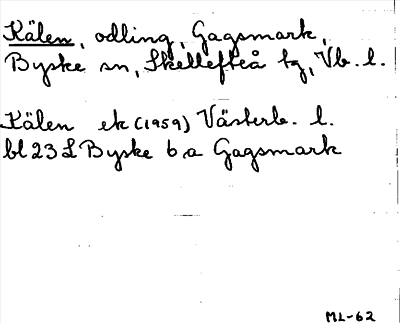 Kälen, odling, Gagsmark,
Byske sn, Skellefteå tg, Vb. l.
Kälen ek (1959) Västerb. l.
bl 23 L Byske 6,a Gagsmark
ML-62